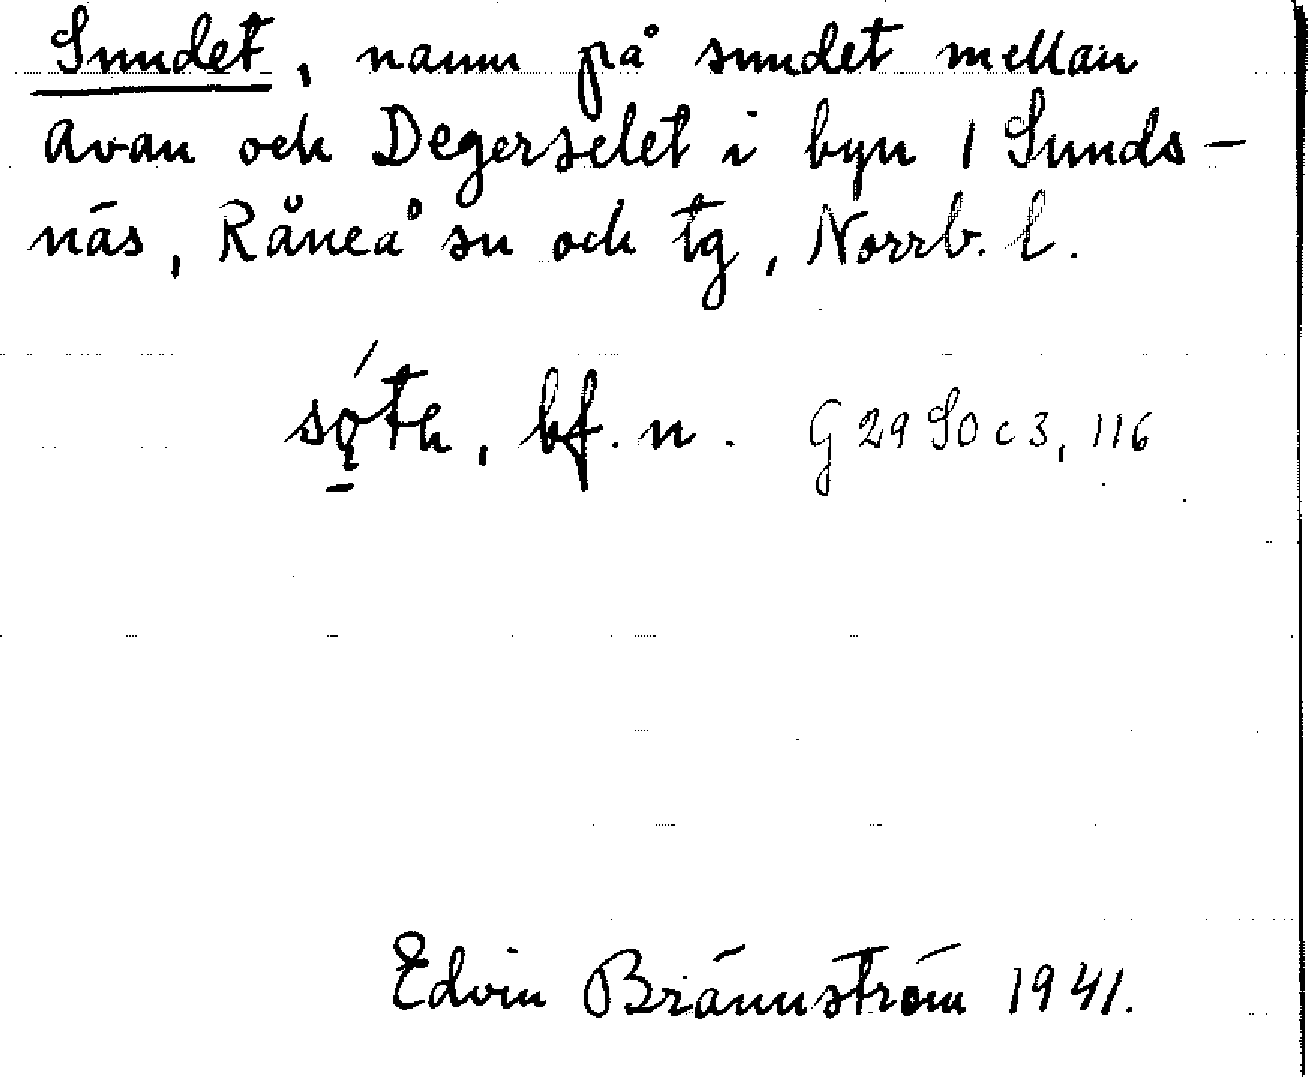 Sundet, namn på sundet mellan
Avan och Degerselet i byn 1 Sunds-
näs, Råneå sn och tg, Norrb. l.
bf. n. G 29 SO c 3, 116
Edvin Brännström 1941.